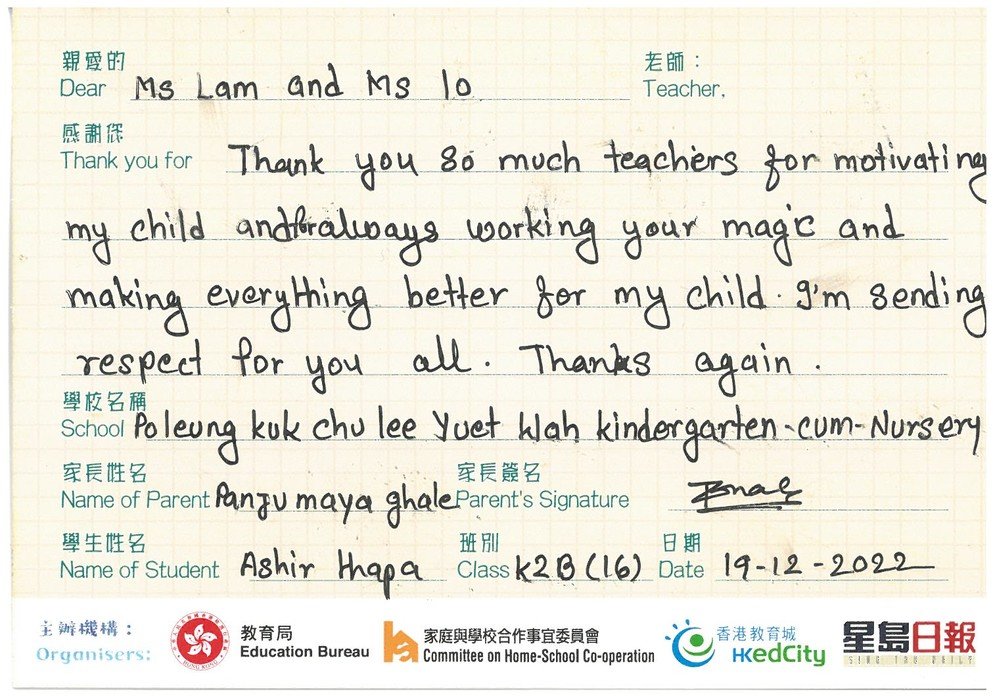 親愛的 老師：
Dear Ms Lam and Ms lo Teacher,
感謝您
Thank you for Thank you so much teachers for motivating
my child and for always working your magic and
making everything better for my child. I'm sending
respect for you all. Thanks again.
學校名稱
School Po leung kuk chu lee Yuet Wah kindergarten-cum-Nursery
家長姓名 家長簽名
Name of Parent Panju maya ghale Parent's Signature
學生姓名 班別 日期
Name of Student Ashir thapa Class K2B (16) Date 19-12-2022
主辦機構： 教育局 家庭與學校合作事宜委員會 香港教育城 星島日報
Organisers: Education Bureau Committee on Home-School Co-operation HKedCity SING TAO DAILY
HONG KONG